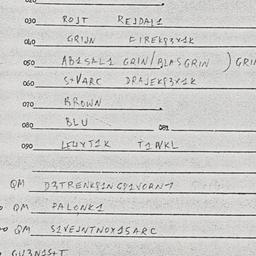 030 ROJT REJDAL1
040 GRIJN FIREKP3X1K
050 AB1SAL1 GRIN/BLAS GRIN ) GRI
060 S+VARC DRAJEKP3X1K
070 BROWN
080 BLU
090 T1NKL
QM D3TRENKP1NGP1VORN7
QM PALONK1
QM S1VEJNTNOX1SARC